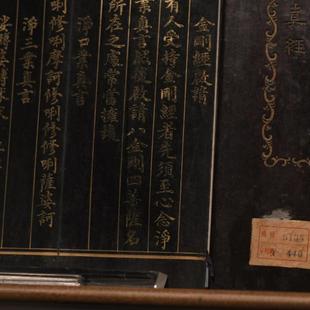 真經
金剛經啟請
有人受持金剛經者先須至心念淨
業真言然後啟請八金剛四菩薩名
所在之處常當擁護
淨口業真言
唎修唎摩訶修唎修修唎薩婆訶
淨三業真言
440